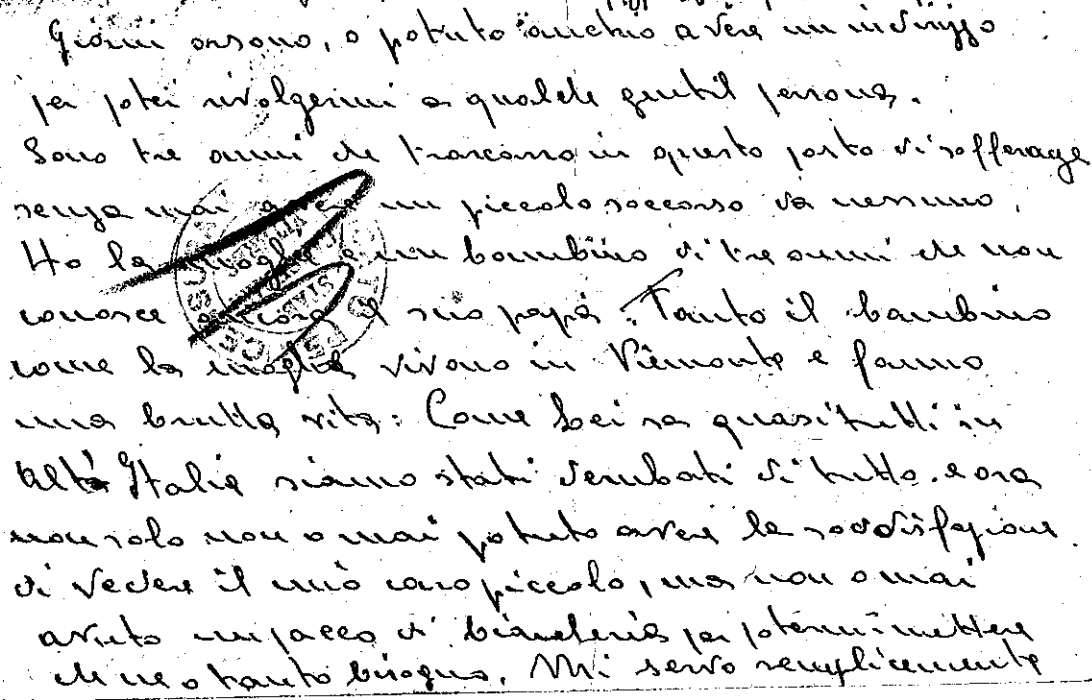 Giorni orsono, o potuto anchio avere un indirizzo
per poter rivolgermi a qualche gentil persona.
Sono tre anni che trascorro in questo posto di sofferaze
senza mai avere un piccolo soccorso da nessuno.
Ho la moglie e un bambino di tre anni che non
conosce ancora il suo papà. Tanto il bambino
come la moglie vivono in Piemonte e fanno
una brutta vita: Come Lei sa quasi tutti in
Alta Italia siamo stati derubati di tutto. e ora
non solo non o mai potuto avere la soddisfazione
di vedere il mio caro piccolo, ma non o mai
avuto un pacco di biancheria per potermi mettere
che ne o tanto bisogno. Mi servo semplicemente